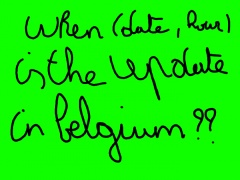 When (date, hour)
is the update
in belgium ??